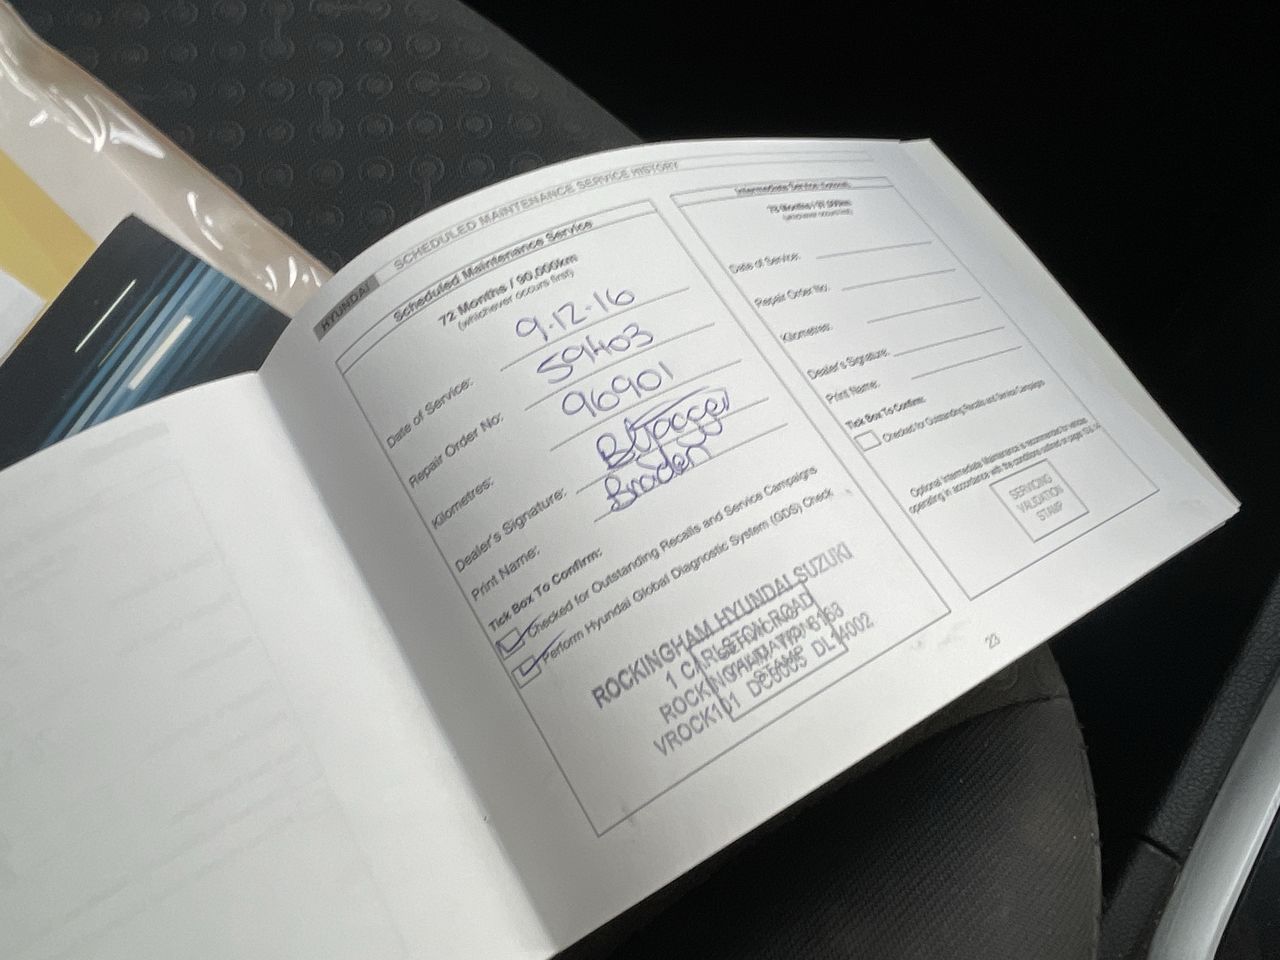 HYUNDAI SCHEDULED MAINTENANCE SERVICE HISTORY
Scheduled Maintenance Service
72 Months / 90,000km
(whichever occurs first)
Date of Service: 9.12.16
Repair Order No: 59403
Kilometres: 96901
Dealer's Signature:
Print Name: Braden
Tick Box To Confirm:
Checked for Outstanding Recalls and Service Campaigns
Perform Hyundai Global Diagnostic System (GDS) Check
ROCKINGHAM HYUNDAI SUZUKI
1 CARLSTON ROAD
ROCKINGHAM 6168
VROCK101 DL14002
STAMP
Intermediate Service
(whichever occurs first)
Date of Service:
Repair Order No:
Kilometres:
Dealer's Signature:
Print Name:
Tick Box To Confirm:
Checked for Outstanding Recalls and Service Campaigns
Optional Intermediate Maintenance is recommended for vehicles
operating in accordance with the conditions outlined on pages
SERVICING
VALIDATION
STAMP
23